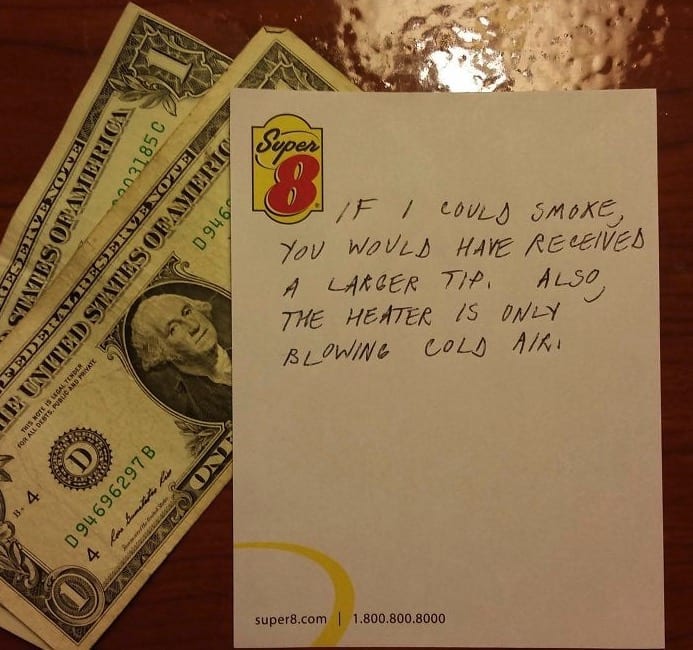 1
RESERVE NOTE
STATES OF AMERICA
FEDERAL RESERVE NOTE
THE UNITED STATES OF AMERIC
THIS NOTE IS LEGAL TENDER
FOR ALL DEBTS, PUBLIC AND PRIVATE
D946
D
B. 4
D 94696297 B
4
1
ONE
Super
8
IF I COULD SMOKE,
YOU WOULD HAVE RECEIVED
A LARGER TIP. ALSO,
THE HEATER IS ONLY
BLOWING COLD AIR.
super8.com | 1.800.800.8000